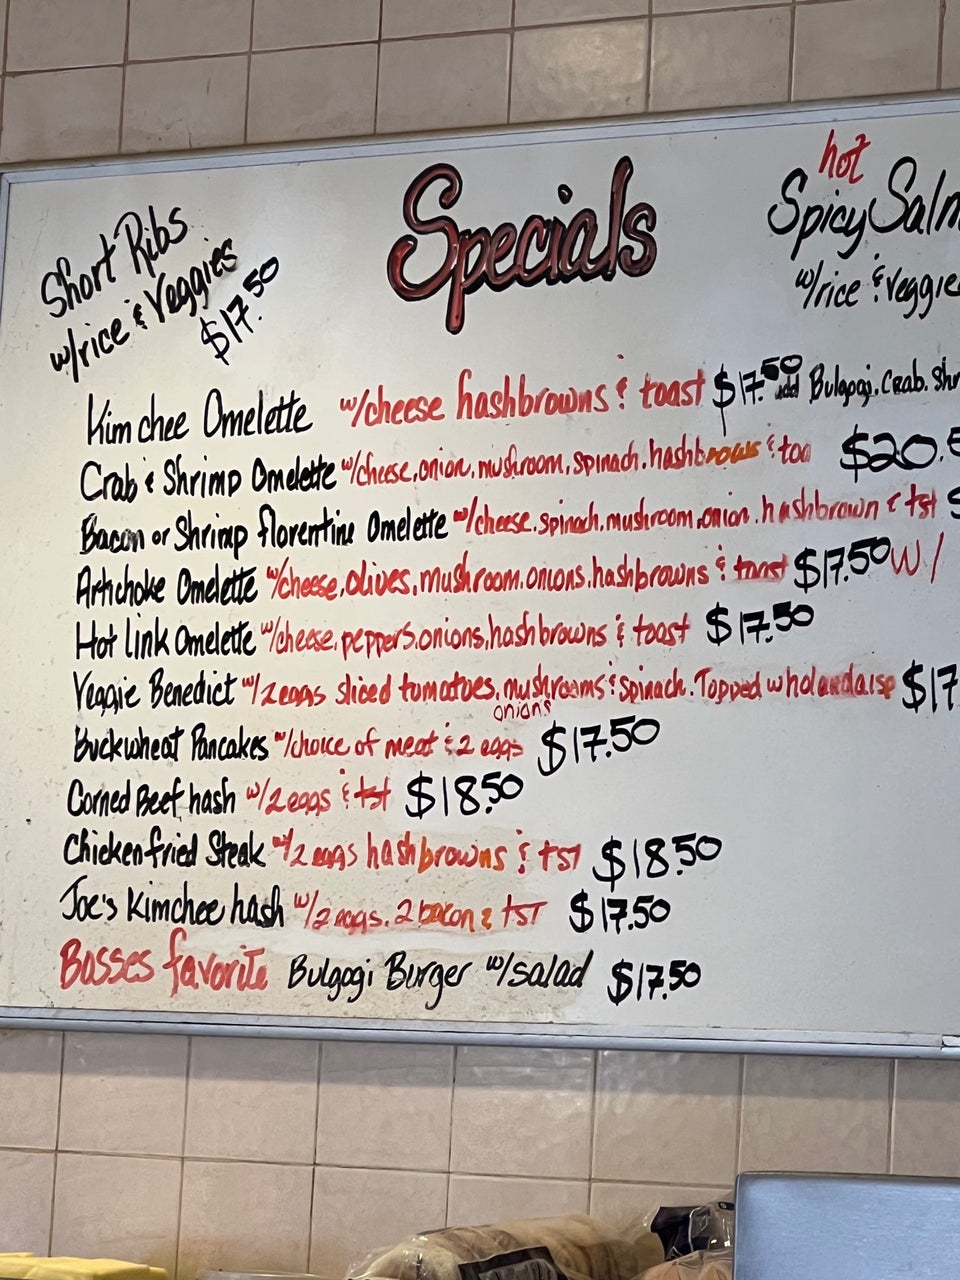 Specials
Short Ribs
w/rice & Veggies
$17.50
hot
Spicy Salm
w/rice & veggie
Kimchee Omelette w/cheese hashbrowns & toast $17.50 add Bulgogi. Crab. Shr
Crab & Shrimp Omelette w/cheese, onion, mushroom, spinach, hashbrowns & toa $20.5
Bacon or Shrimp florentine Omelette w/cheese, spinach, mushroom, onion, hashbrown & tst $
Artichoke Omelette w/cheese, olives, mushroom, onions, hashbrowns & toast $17.50 w/
Hot link Omelette w/cheese, peppers, onions, hashbrowns & toast $17.50
Veggie Benedict w/2 eggs sliced tomatoes, mushrooms & spinach. Topped w holandaise $17
onions
Buckwheat Pancakes w/choice of meat & 2 eggs $17.50
Corned Beef hash w/2 eggs & tst $18.50
Chicken fried Steak w/2 eggs hashbrowns & tst $18.50
Joe's Kimchee hash w/2 eggs, 2 bacon & tst $17.50
Bosses favorite Bulgogi Burger w/salad $17.50